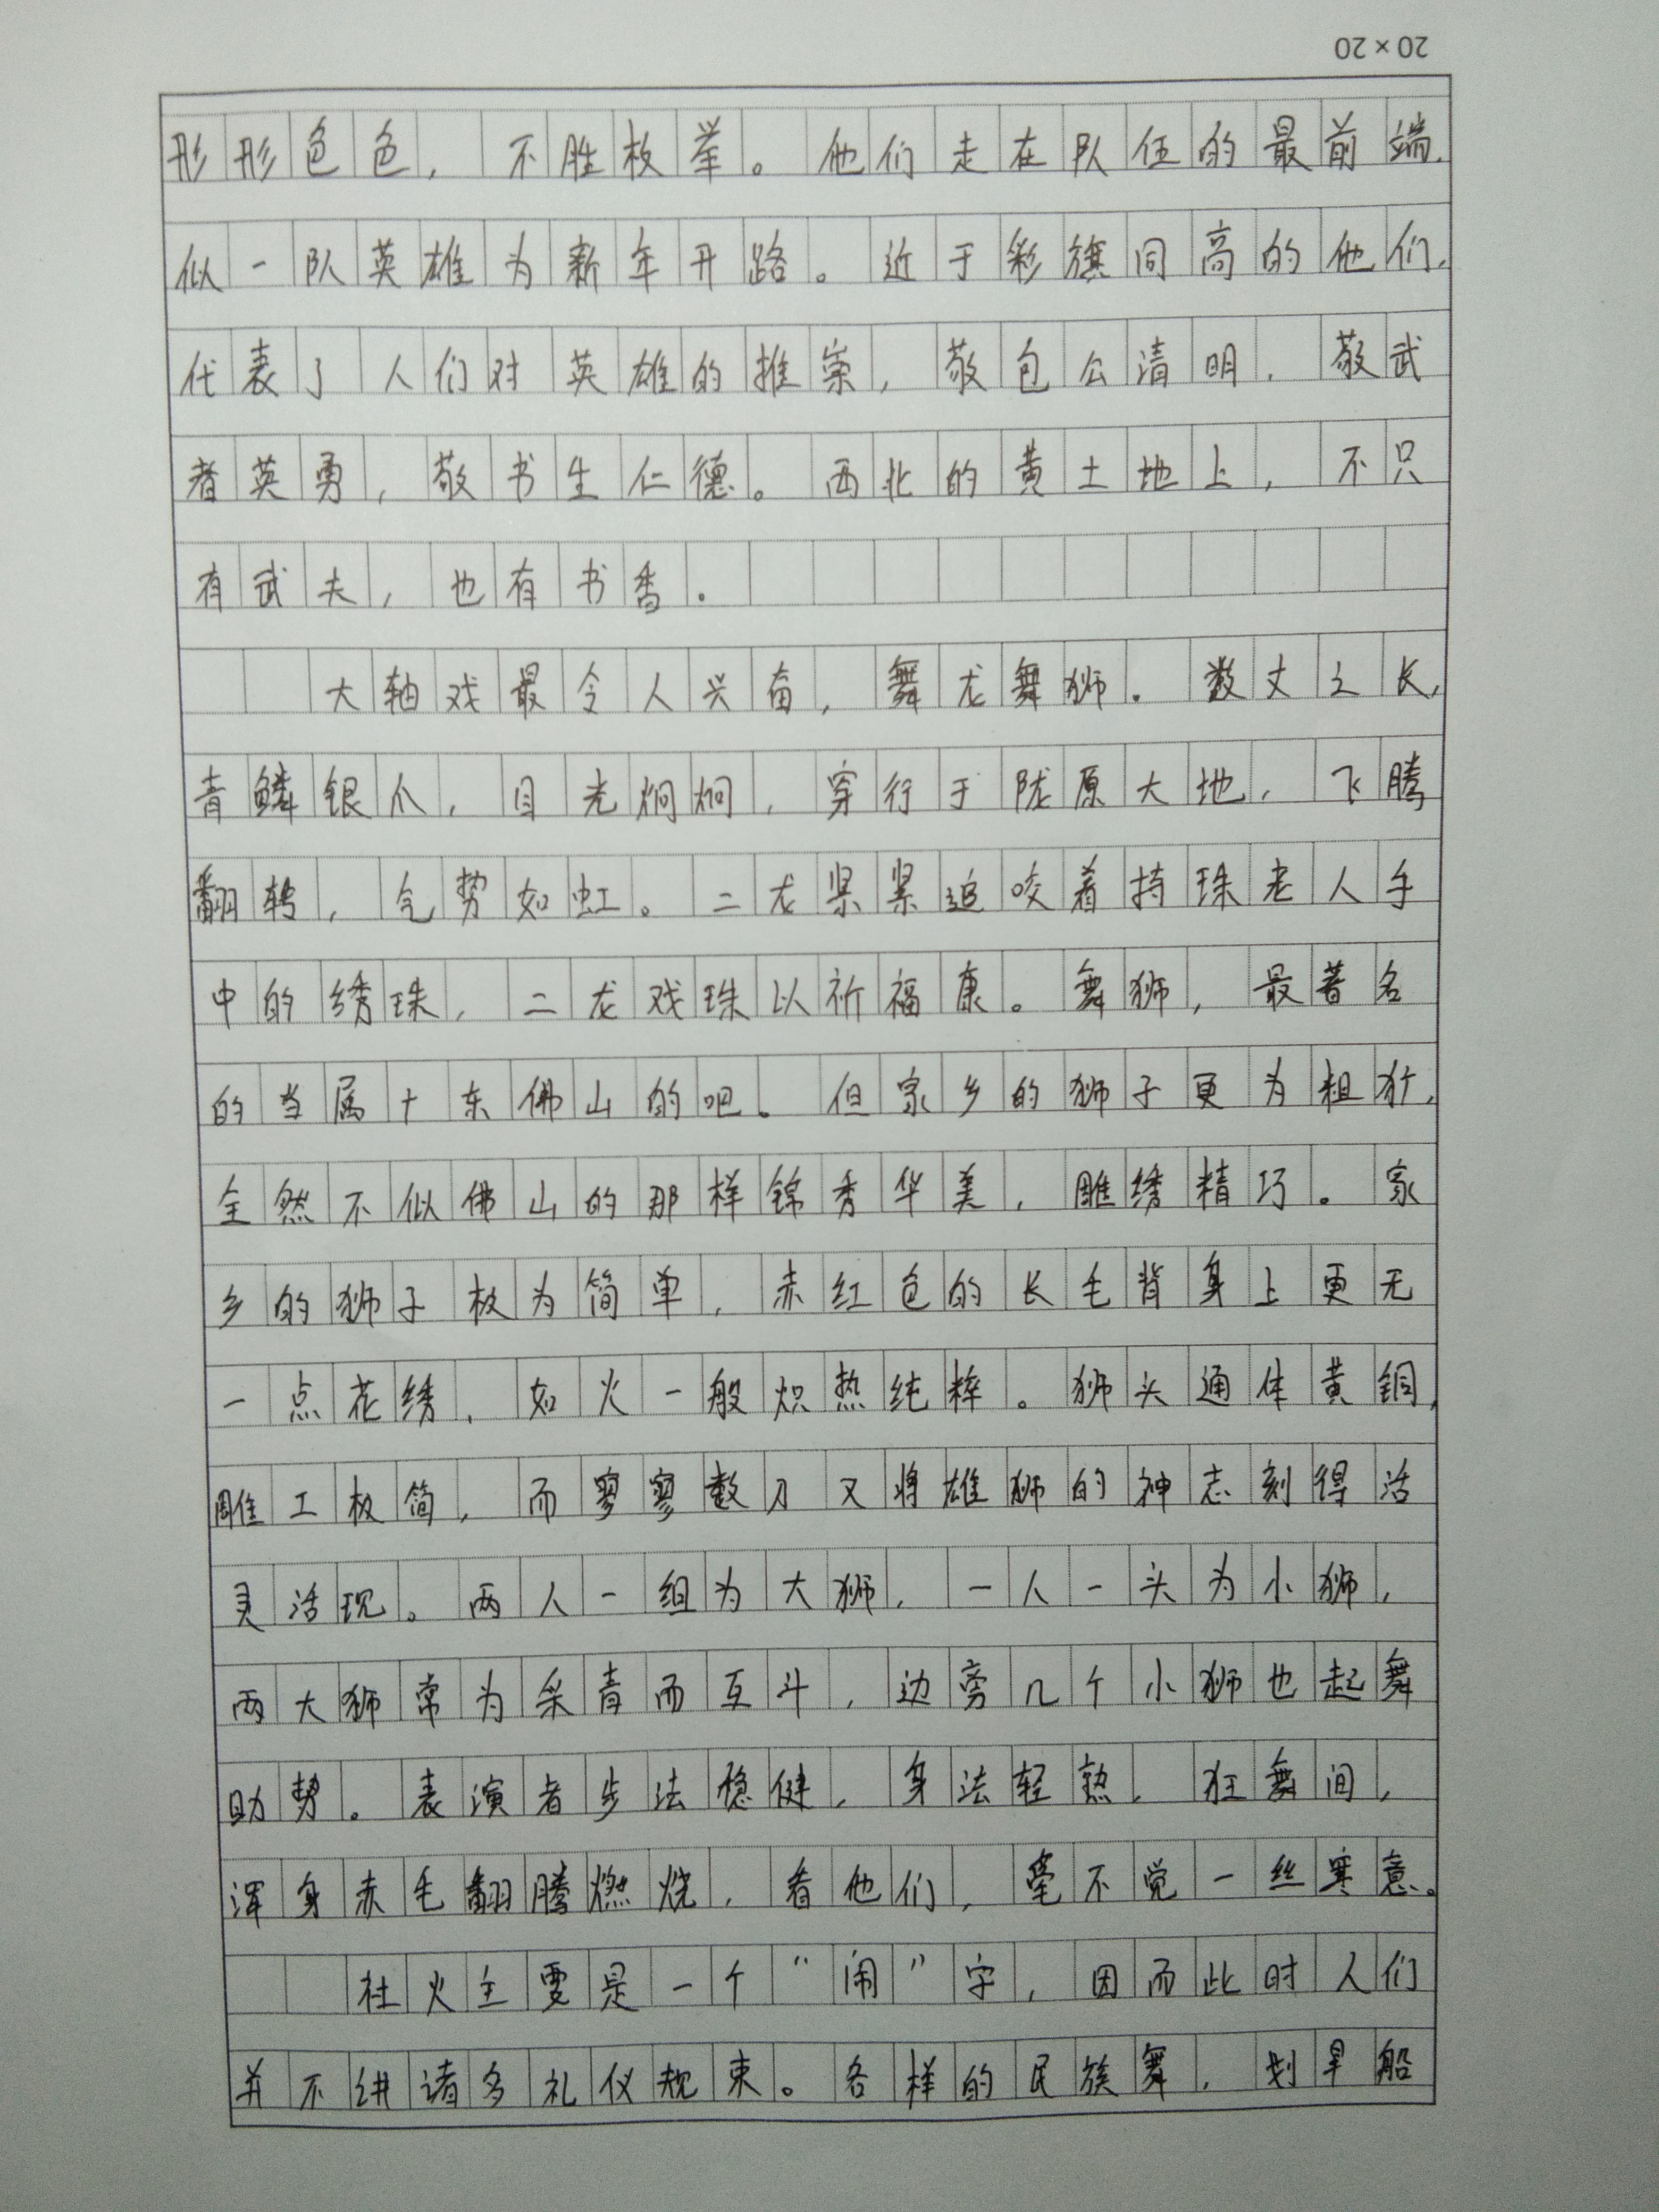 20×20
形形色色，不胜枚举。他们走在队伍的最前端，
似一队英雄为新年开路。近于彩旗同高的他们，
代表了人们对英雄的推崇，敬包公清明，敬武
者英勇，敬书生仁德。西北的黄土地上，不只
有武夫，也有书香。
大轴戏最令人兴奋，舞龙舞狮。数丈之长，
青鳞银爪，目光炯炯，穿行于陇原大地，飞腾
翻转，气势如虹。二龙紧紧追咬着持珠老人手
中的绣珠，二龙戏珠以祈福康。舞狮，最著名
的当属广东佛山的吧。但家乡的狮子更为粗犷，
全然不似佛山的那样锦秀华美，雕绣精巧。家
乡的狮子极为简单，赤红色的长毛背身上更无
一点花绣，如火一般炽热纯粹。狮头通体黄铜，
雕工极简，而寥寥数刀又将雄狮的神志刻得活
灵活现。两人一组为大狮，一人一头为小狮，
两大狮常为采青而互斗，边旁几个小狮也起舞
助势。表演者步法稳健，身法轻熟，狂舞间，
浑身赤毛翻腾燃烧，看他们，毫不觉一丝寒意。
社火主要是一个“闹”字，因而此时人们
并不讲诸多礼仪规束。各样的民族舞，划旱船